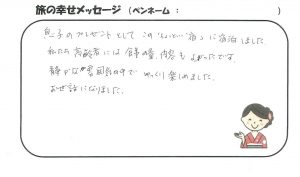 旅の幸せメッセージ （ペンネーム： ）
息子のプレゼントとして この 宿 に宿泊しました
私たち高齢者には 食事の量、内容も よかったです。
静かな雰囲気の中で ゆっくり楽しめました。
お世話になりました。